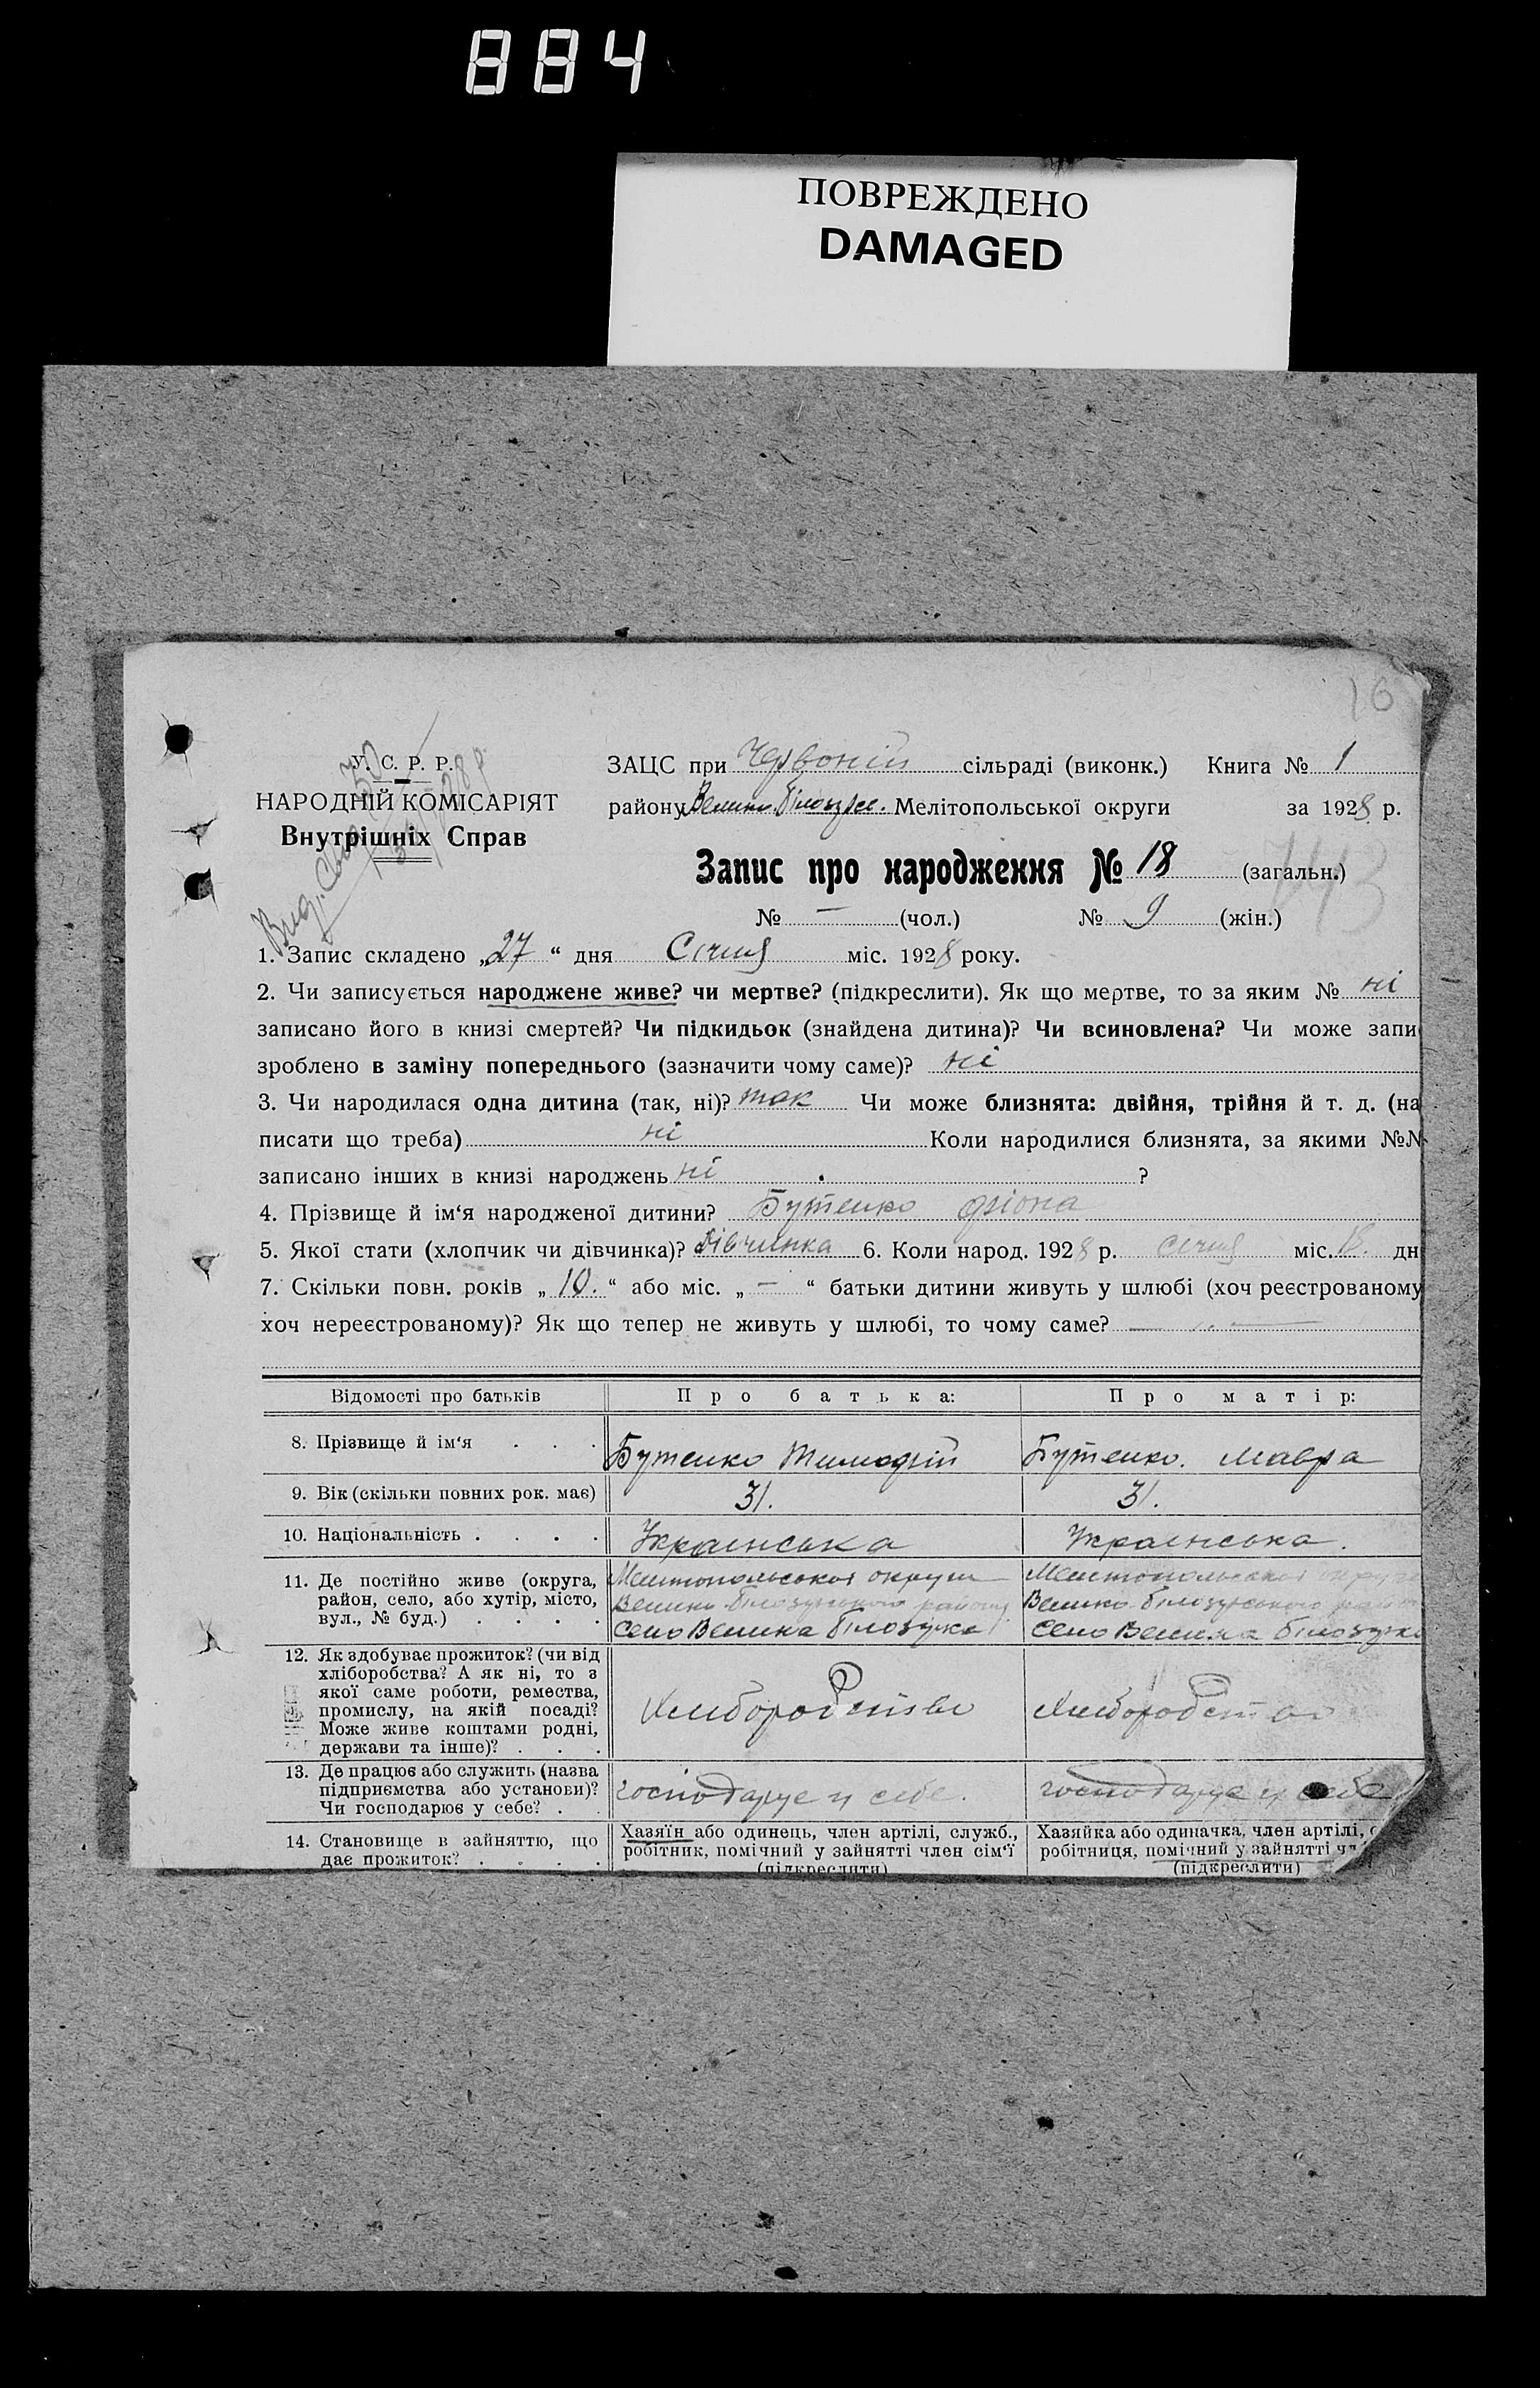 884
ПОВРЕЖДЕНО
DAMAGED
16
У. С. Р. Р.
НАРОДНІЙ КОМІСАРІЯТ
Внутрішніх Справ
ЗАЦС при Червоній сільраді (виконк.) Книга № 1
району Велико Білозірс. Мелітопольської округи за 1928 р.
Запис про народження № 18 (загальн.)
№ — (чол.) № 9 (жін.)
1. Запис складено „27“ дня Січня міс. 1928 року.
2. Чи записується народжене живе? чи мертве? (підкреслити). Як що мертве, то за яким № ні
записано його в книзі смертей? Чи підкидьок (знайдена дитина)? Чи всиновлена? Чи може запи
зроблено в заміну попереднього (зазначити чому саме)? ні
3. Чи народилася одна дитина (так, ні)? так Чи може близнята: двійня, трійня й т. д. (на
писати що треба) ні Коли народилися близнята, за якими №№
записано інших в книзі народжень ні ?
4. Прізвище й ім‘я народженої дитини? Бутенко фіона
5. Якої стати (хлопчик чи дівчинка)? дівчинка 6. Коли народ. 1928 р. січня міс. 18. дн
7. Скільки повн. років „10.“ або міс. „—“ батьки дитини живуть у шлюбі (хоч реєстрованому
хоч нереєстрованому)? Як що тепер не живуть у шлюбі, то чому саме? —
Відомості про батьків Про батька: Про матір:
8. Прізвище й ім‘я . . . Бутенко Тимофій Бутенко. Мавра
9. Вік (скільки повних рок. має) 31. 31.
10. Національність . . . . Українська Українська.
11. Де постійно живе (округа, Мелітопольської округи Мелітопольської округи
район, село, або хутір, місто, Велико-білозірського району Велико-білозірського
вул., № буд.) . . . . Село Велика Білозірка Село Велика Білозірка
12. Як здобуває прожиток? (чи від
хліборобства? А як ні, то з
якої саме роботи, ремества,
промислу, на якій посаді? Хліборобство Хліборобство
Може живе коштами родні,
держави та інше)? . . .
13. Де працює або служить (назва
підприємства або установи)? господарує у себе. господарує у себе
Чи господарює у себе? . .
14. Становище в зайняттю, що Хазяїн або одинець, член артілі, служб., Хазяйка або одиначка, член артілі,
дає прожиток? . . . . робітник, помічний у зайнятті член сім‘ї робітниця, помічний у зайнятті
(підкреслити) (підкреслити)